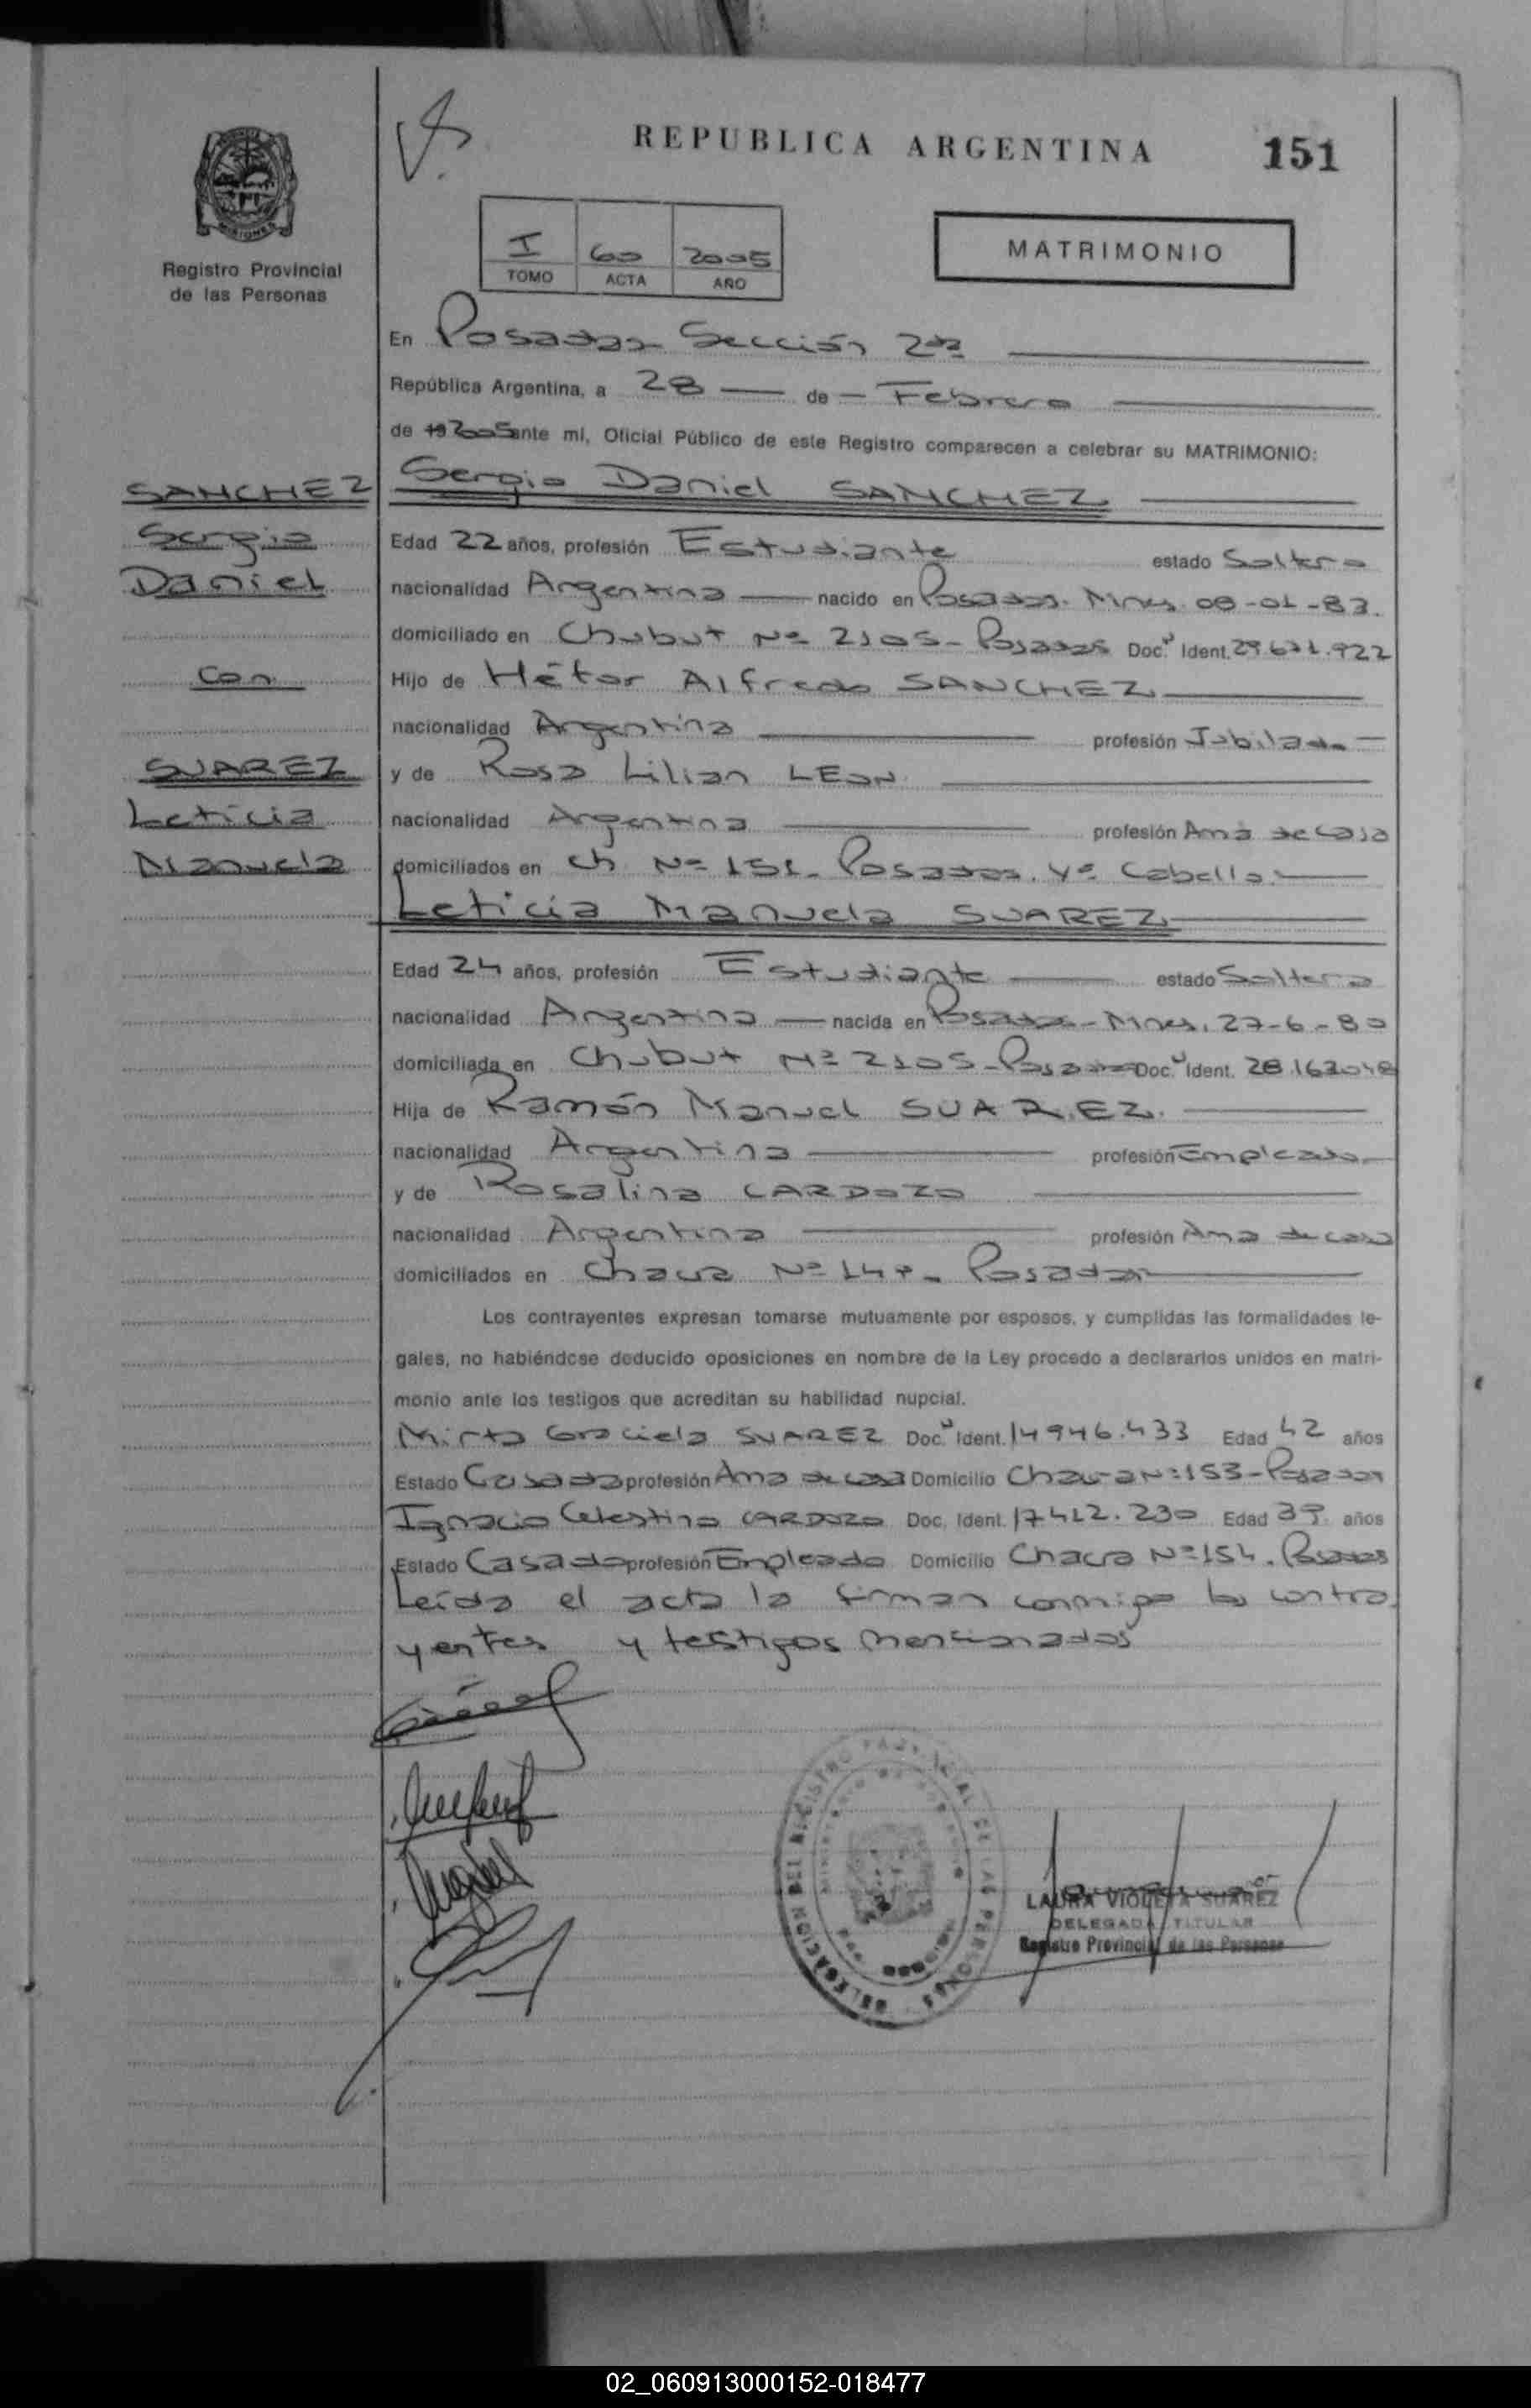 REPUBLICA ARGENTINA
151
MISIONES
Registro Provincial
de las Personas
I 60 2005
TOMO ACTA AÑO
MATRIMONIO
En Posadas Sección 2da
República Argentina, a 28 de Febrero
de 19 2005 ante mí, Oficial Público de este Registro comparecen a celebrar su MATRIMONIO:
SANCHEZ
Sergio
Daniel
con
SUAREZ
Leticia
Manuela
Sergio Daniel SANCHEZ
Edad 22 años, profesión Estudiante estado Soltero
nacionalidad Argentina nacido en Posadas. Mnes. 08-01-83.
domiciliado en Chubut Nº 2105- Posadas Doc. Ident. 29.671.922
Hijo de Héctor Alfredo SANCHEZ
nacionalidad Argentina profesión Jubilado
y de Rosa Lilian LEON
nacionalidad Argentina profesión Ama de casa
domiciliados en Ch Nº 151- Posadas. Vª Cabello.
Leticia Manuela SUAREZ
Edad 24 años, profesión Estudiante estado Soltera
nacionalidad Argentina nacida en Posadas- Mnes. 27-6-80
domiciliada en Chubut Nº 2105- Posadas Doc. Ident. 28.163.048
Hija de Ramón Manuel SUAREZ.
nacionalidad Argentina profesión Empleado
y de Rosalina CARDOZO
nacionalidad Argentina profesión Ama de casa
domiciliados en Chacra Nº Posadas
Los contrayentes expresan tomarse mutuamente por esposos, y cumplidas las formalidades le-
gales, no habiéndose deducido oposiciones en nombre de la Ley procedo a declararlos unidos en matri-
monio ante los testigos que acreditan su habilidad nupcial.
Mirta Graciela SUAREZ Doc. Ident. 14946.433 Edad 42 años
Estado Casada profesión Ama de casa Domicilio Chacra Nº 153- Posadas
Ignacio Celestino CARDOZO Doc. Ident. 17.412.230 Edad 39 años
Estado Casado profesión Empleado Domicilio Chacra Nº 154. Posadas
Leída el acta la firman conmigo los contra
yentes y testigos mencionados
DELEGACION DEL REGISTRO PROVINCIAL DE LAS PERSONAS
LAURA VIOLETA SUAREZ
DELEGADA TITULAR
Registro Provincial de las Personas
02_060913000152-018477